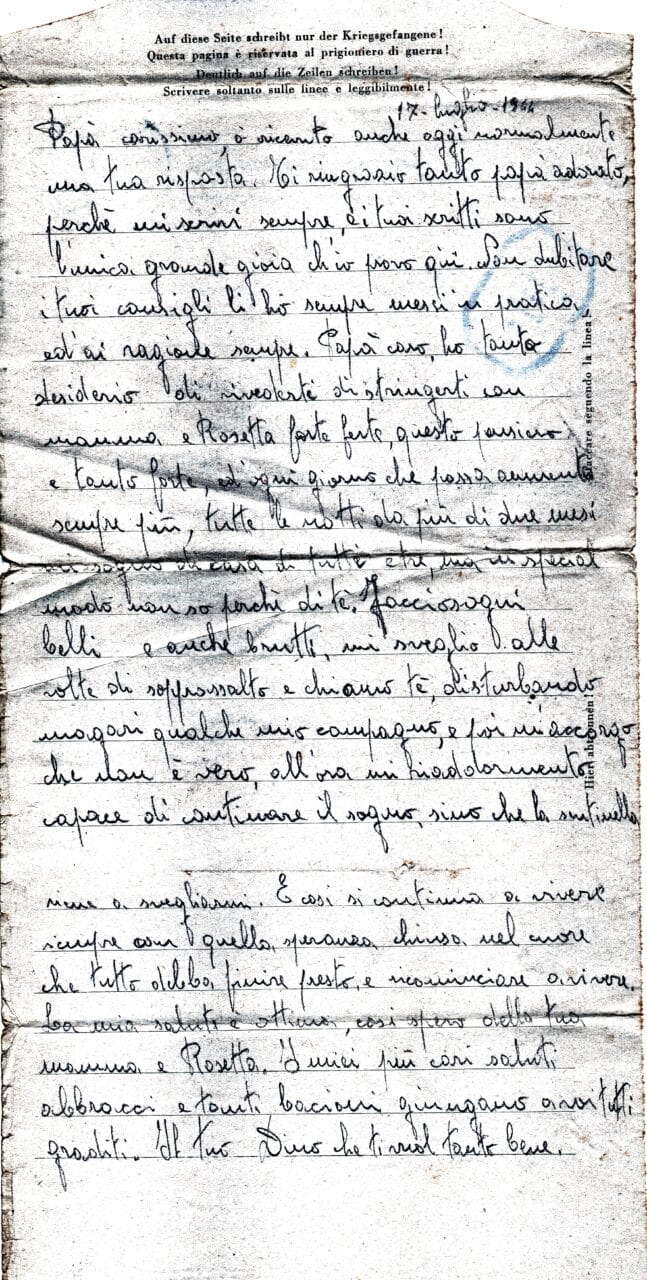 Auf diese Seite schreibt nur der Kriegsgefangene!
Questa pagina è riservata al prigioniero di guerra!
Deutlich auf die Zeilen schreiben!
Scrivere soltanto sulle linee e leggibilmente!
17-luglio-1944
Papà carissimo, ò ricevuto anche oggi normalmente
una tua risposta. Ti ringrazio tanto papà adorato,
perchè mi scrivi sempre, e i tuoi scritti sono
l'unica grande gioia ch'io provo qui. Non dubitare
i tuoi consigli li hò sempre messi in pratica,
ed'ai ragione sempre. Papà caro, ho tanto
desiderio di rivederti di stringerti con
mamma e Rosetta forte forte, questo pensiero
e tanto forte, ed'ogni giorno che passa aumenta
sempre più, tutte le notti da più di due mesi
mi sogno di casa di tutti e tre, ma in special
modo non so perchè di tè. Facciosogni
belli e anche brutti, mi sveglio alle
volte di soprassalto e chiamo tè, disturbando
magari qualche mio compagno, e poi m'accorgo
che non è vero, all'ora mi riaddormento
capace di continuare il sogno, sino che la sentinella
viene a svegliarmi. E cosi si continua a vivere
sempre con quella speranza chiusa nel cuore
che tutto debba finire presto, e ricominciare a vivere.
La mia salute è ottima, cosi spero della tua
mamma e Rosetta. I miei più cari saluti
abbracci e tanti bacioni giungano a voi tutti
graditi. Il tuo Dino che ti vuol tanto bene.
seguendo la linea
Hier abtrennen!